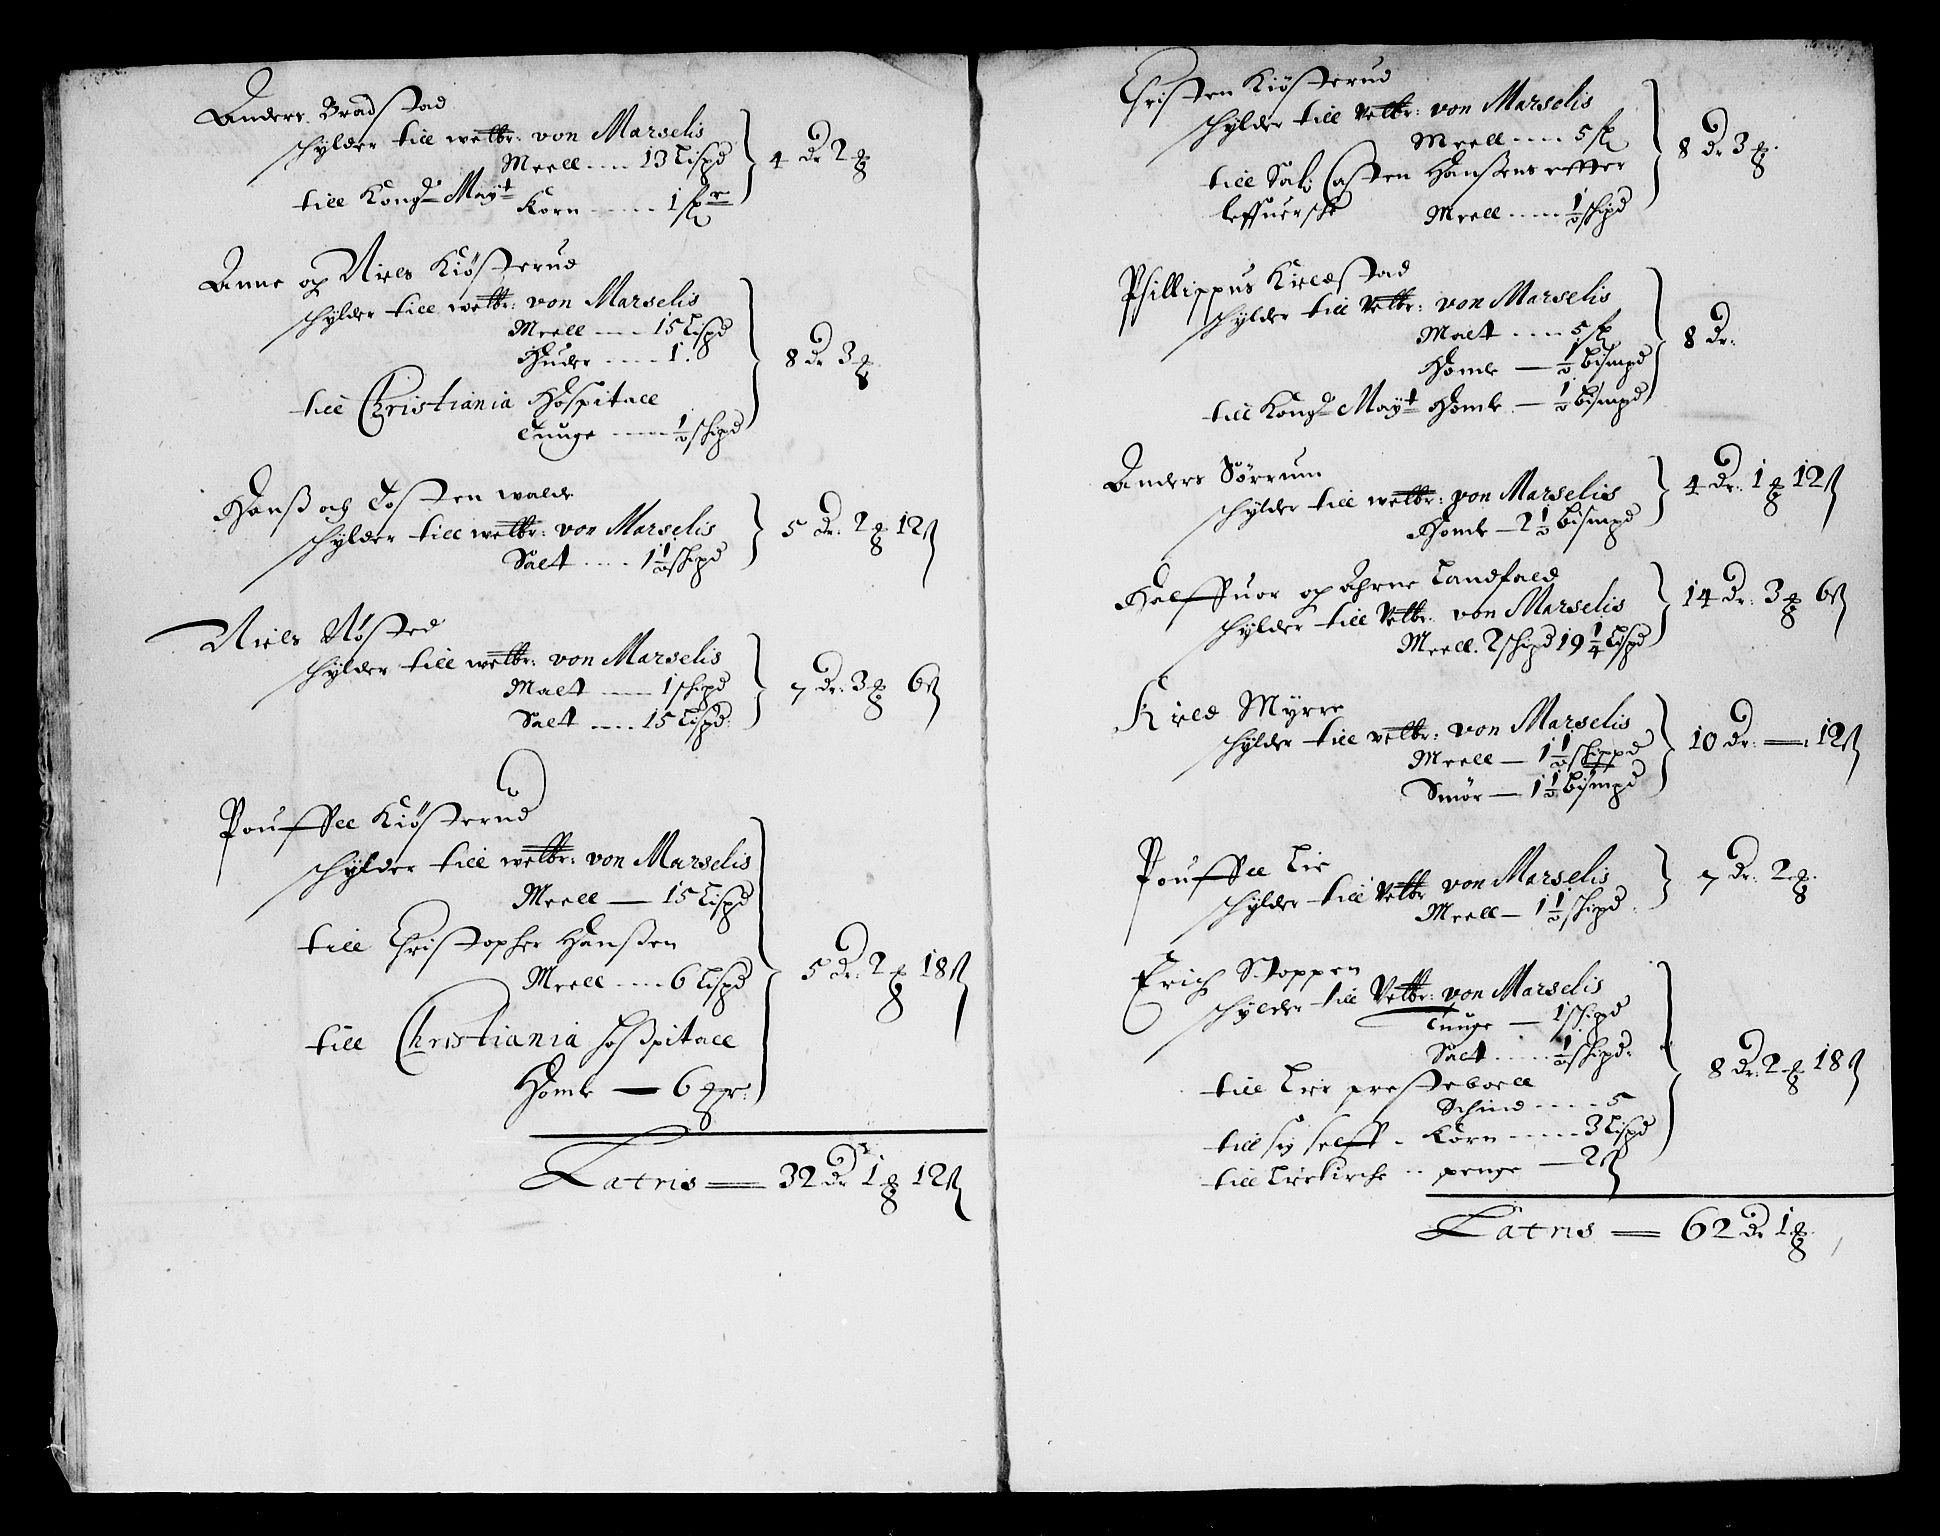 Anders Bradstad
schylder till welbr: von Marselis
Meell ---- 13 Lispd
till Kongl Mayt Korn ----- 1 sk
4 Dr 2
Anne og Niels Kiøsterud
schylder till welbr: von Marselis
Meell ---- 15 Lispd
Huder ---- 1.
till Christiania Hospitall
Tunge ---- ½ schipd
8 Dr 3
Hanß och Tosten walde
schylder till welbr: von Marselis
Salt ---- 1½ schipd
5 Dr: 2 12 ß
Niels Nøsted
schylder till welbr: von Marselis
Malt ---- 1 schipd
Salt ---- 15 Lispd:
7 Dr: 3 6 ß
Pouffuell Kiøsterud
schylder till welbr: von Marselis
Meell — 15 Lispd
till Christopher Hanßen
Meell ---- 6 Lispd
till Christiania hoßpitall
Homle — 6
5 Dr: 2 18 ß
Latris = 32 Dr 1 12 ß
Christen Kiøsterud
schylder till Velbr: von Marselis
Meell ---- 5 sk
till Sal: Casten Hanßens effter
leffuersche Meell ---- ½ schipd
8 Dr 3
Phillippus Kieldstad
schylder till Velbr: von Marselis
Malt ---- 5 sk
Homle — ½ bismpd
till Kongl Mayt Homle — ½ bismpd
8 Dr:
Anders Sørrum
schylder till welbr: von Marselis
Homle — 2½ bismpd
4 Dr: 1 12 ß
Halffuor og Ahrne Landfald
schylder till Velbr: von Marselis
Meell. 2 schipd 19¼ Lispd
14 Dr: 3 6 ß
Kield Myrre
schylder till velbr: von Marselis
Meell — 1½ schippd
Smør — 1½ bismpd
10 Dr: —: 12 ß
Pouffuell Lie
schylder till Velbr von Marselis
Meell — 1½ schipd
7 Dr: 2
Erich Stoppen
schylder till Velbr: von Marselis
Tunge — 1 schipd
Salt ---- ½ schipd:
till Lier presteboell
Schind ---- 5
till sig selff - Korn ----- 3 Lispd
till Lierkirche -- penge — 2 ß
8 Dr: 2 18 ß
Latris = 62 Dr 1